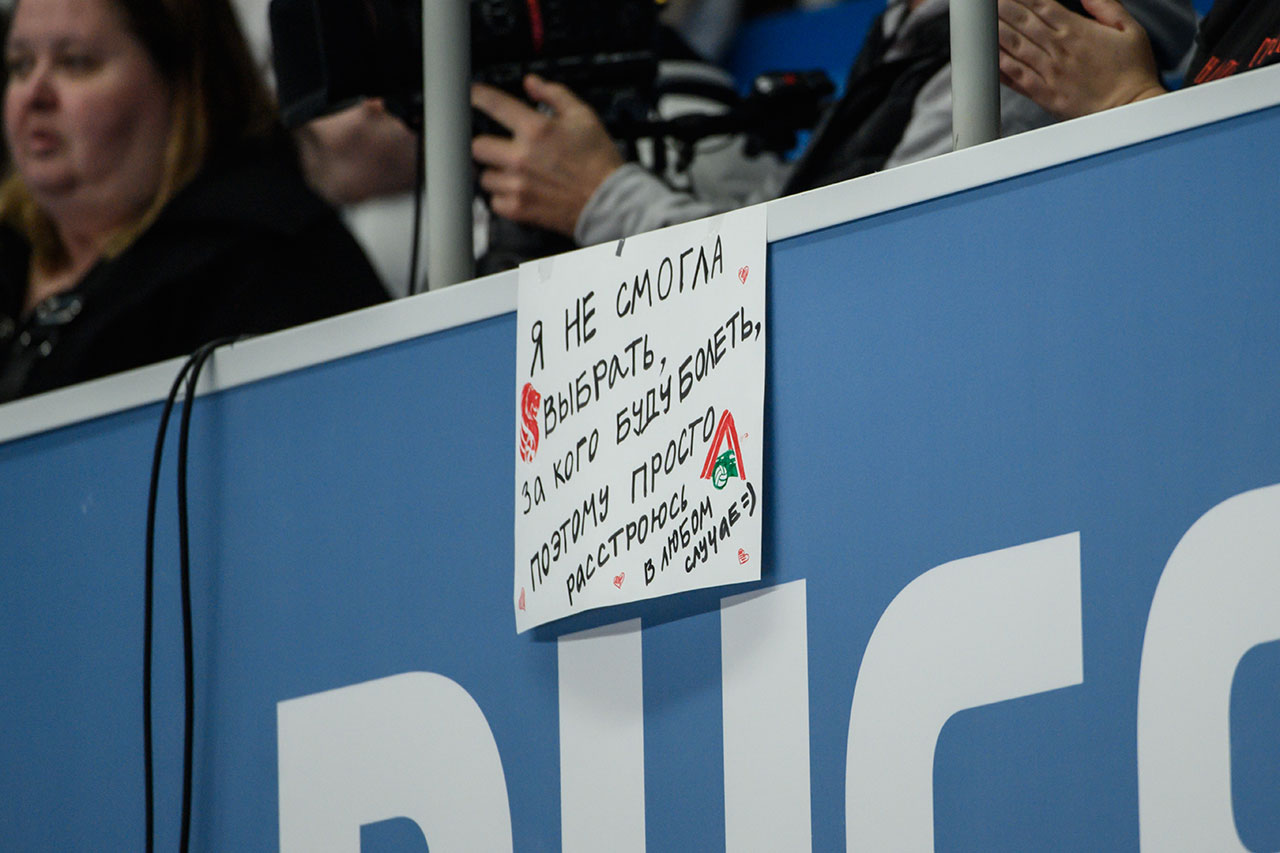 Я НЕ СМОГЛА
ВЫБРАТЬ,
ЗА КОГО БУДУ БОЛЕТЬ,
ПОЭТОМУ ПРОСТО
РАССТРОЮСЬ
В ЛЮБОМ
СЛУЧАЕ =)